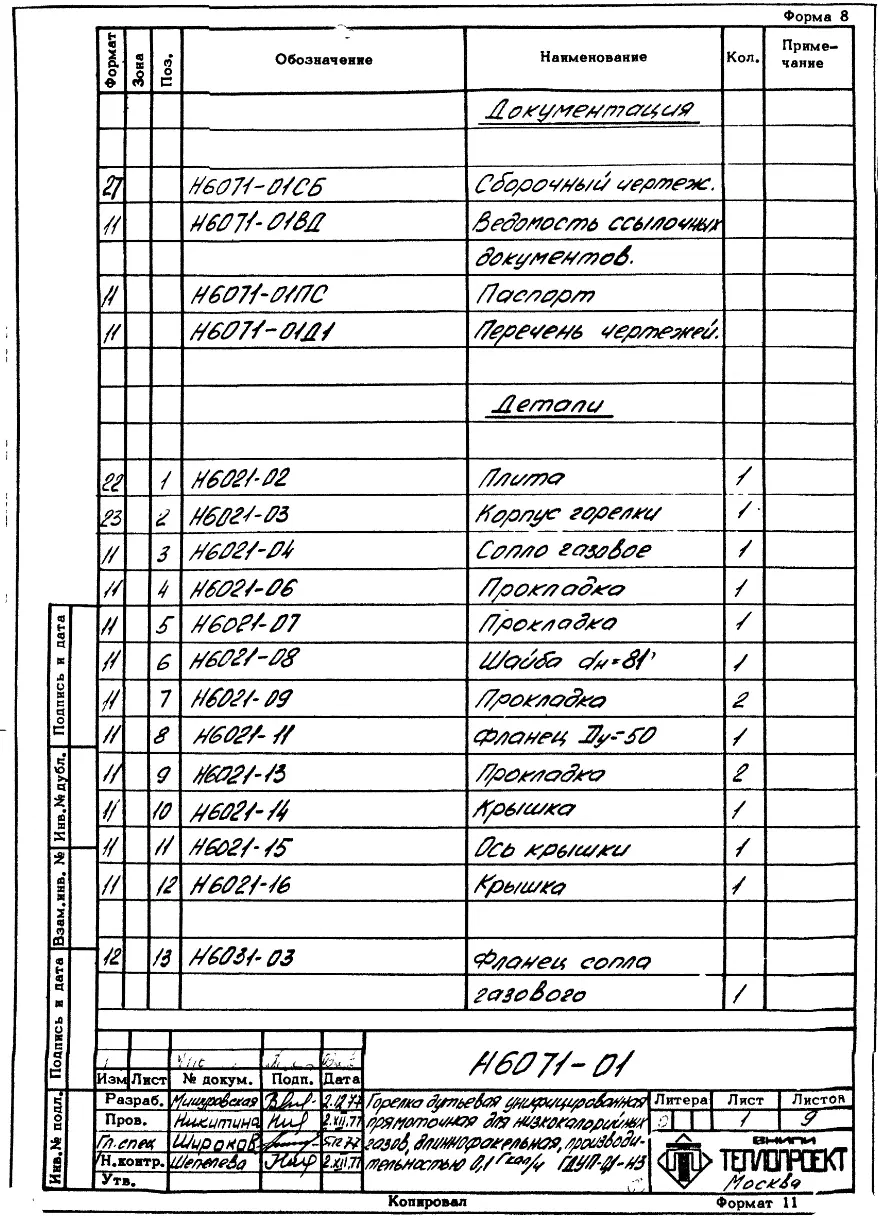 Форма 8
Формат Зона Поз. Обозначение Наименование Кол. Приме-
чание
Документация
27 Н6071-01СБ Сборочный чертеж.
11 Н6071-01ВД Ведомость ссылочных
документов.
11 Н6071-01ПС Паспорт
11 Н6071-01Д1 Перечень чертежей.
Детали
22 1 Н6021-02 Плита 1
23 2 Н6021-03 Корпус горелки 1
11 3 Н6021-04 Сопло газовое 1
11 4 Н6021-06 Прокладка 1
11 5 Н6021-07 Прокладка 1
11 6 Н6021-08 Шайба dн=81 1
11 7 Н6021-09 Прокладка 2
11 8 Н6021-11 Фланец Ду=50 1
11 9 Н6021-13 Прокладка 2
11 10 Н6021-14 Крышка 1
11 11 Н6021-15 Ось крышки 1
11 12 Н6021-16 Крышка 1
12 13 Н6031-03 Фланец сопла
газового 1
Подпись и дата
Инв.№ дубл.
Взам.инв. №
Подпись и дата
Инв.№ подл.
Н6071-01
Изм Лист № докум. Подп. Дата
Разраб.
Пров. Никитина 2.XII.77
Гл.спец Широков
Н.контр. Шепелева 2.XII.77
Утв.
Горелка дутьевая унифицированная
прямоточная для низкокалорийных
газов, длиннофакельная, производи-
тельностью 0,1 Гкал/ч ГДУП-0,1-НЗ
Литера Лист Листов
1 9
ВНИПИ
ТЕПЛОПРОЕКТ
Москва
Копировал Формат 11